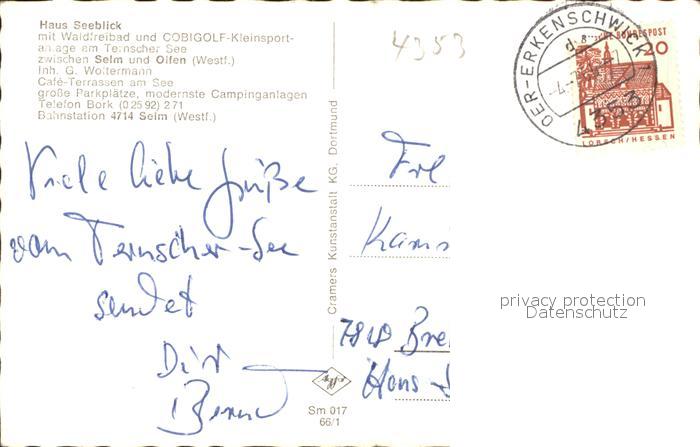 Haus Seeblick
mit Waldfreibad und COBIGOLF-Kleinsport-
anlage am Ternscher See
zwischen Selm und Olfen (Westf.)
Inh. G. Woltermann
Café-Terrassen am See
große Parkplätze, modernste Campinganlagen
Telefon Bork (0 25 92) 2 71
Bahnstation 4714 Selm (Westf.)
4353
OER-ERKENSCHWICK
4353
BUNDESPOST
20
LORSCH/HESSEN
Viele liebe Grüße
vom Ternscher-See
sendet
Dir
Bernd
Cramers Kunstanstalt KG. Dortmund
Frl
Kam
Bre
Hans
Agfa
Sm 017
66/1
privacy protection
Datenschutz